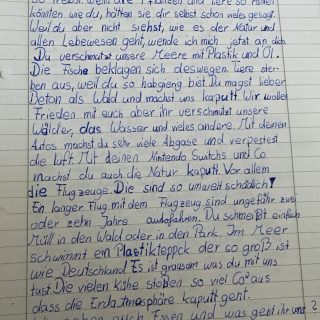 könnten wie du, hätten sie dir selbst schon vieles gesagt.
Weil du aber nicht siehst, wie es der Natur und
allen Lebewesen geht, wende ich mich jetzt an dich.
Du verschmutzt unsere Meere mit Plastik und Öl.
Die Fische beklagen sich deswegen. Tiere ster-
ben aus, weil du so habgierig bist. Du magst lieber
Beton als Wald und machst uns kaputt. Wir wollen
Frieden mit euch aber ihr verschmutzt unsere
Wälder, das Wasser und vieles andere. Mit deinen
Autos machst du sehr viele Abgase und verpestest
die Luft. Mit deinen Nintendo Switchs und Co.
machst du auch die Natur kaputt. Vor allem
die Flugzeuge. Die sind so umweltschädlich!
En langer Flug mit dem Flugzeug sind ungefähr zwei
oder zehn Jahre autofahren. Du schmeißt einfach
Müll in den Wald oder in den Park. Im Meer
schwimmt ein Plastikteppck der so groß ist
wie Deutschland! Es ist grausam was du mit uns
tust. Die vielen Kühe stoßen so viel Co² aus
dass die Erdatmosphäre kaputt geht.
auch Essen und was gebt ihr uns?